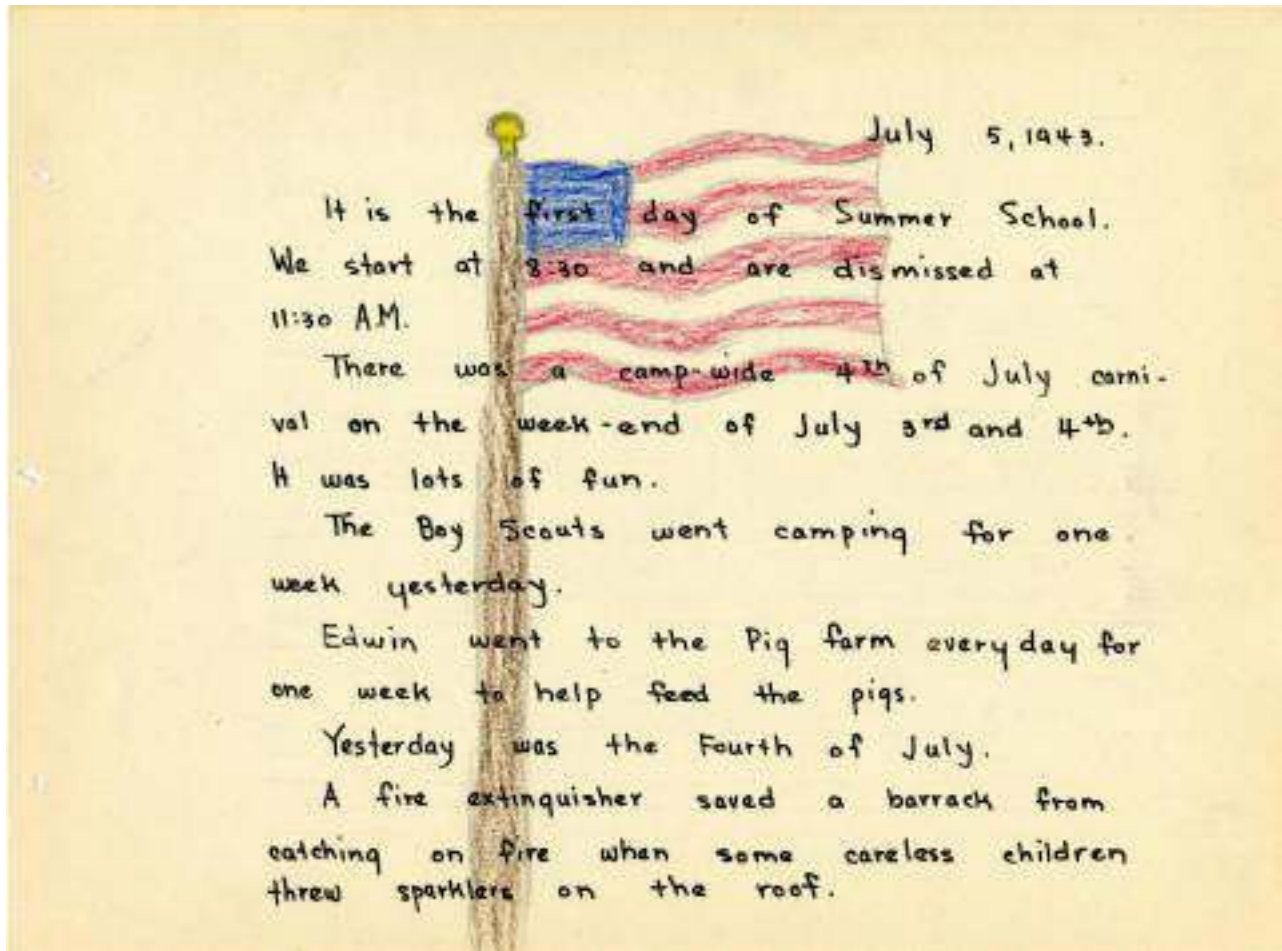 July 5, 1943.
It is the first day of Summer School.
We start at 8:30 and are dismissed at
11:30 A.M.
There was a camp-wide 4th of July carni-
val on the week-end of July 3rd and 4th.
It was lots of fun.
The Boy Scouts went camping for one
week yesterday.
Edwin went to the Pig farm everyday for
one week to help feed the pigs.
Yesterday was the Fourth of July.
A fire extinguisher saved a barrack from
catching on fire when some careless children
threw sparklers on the roof.